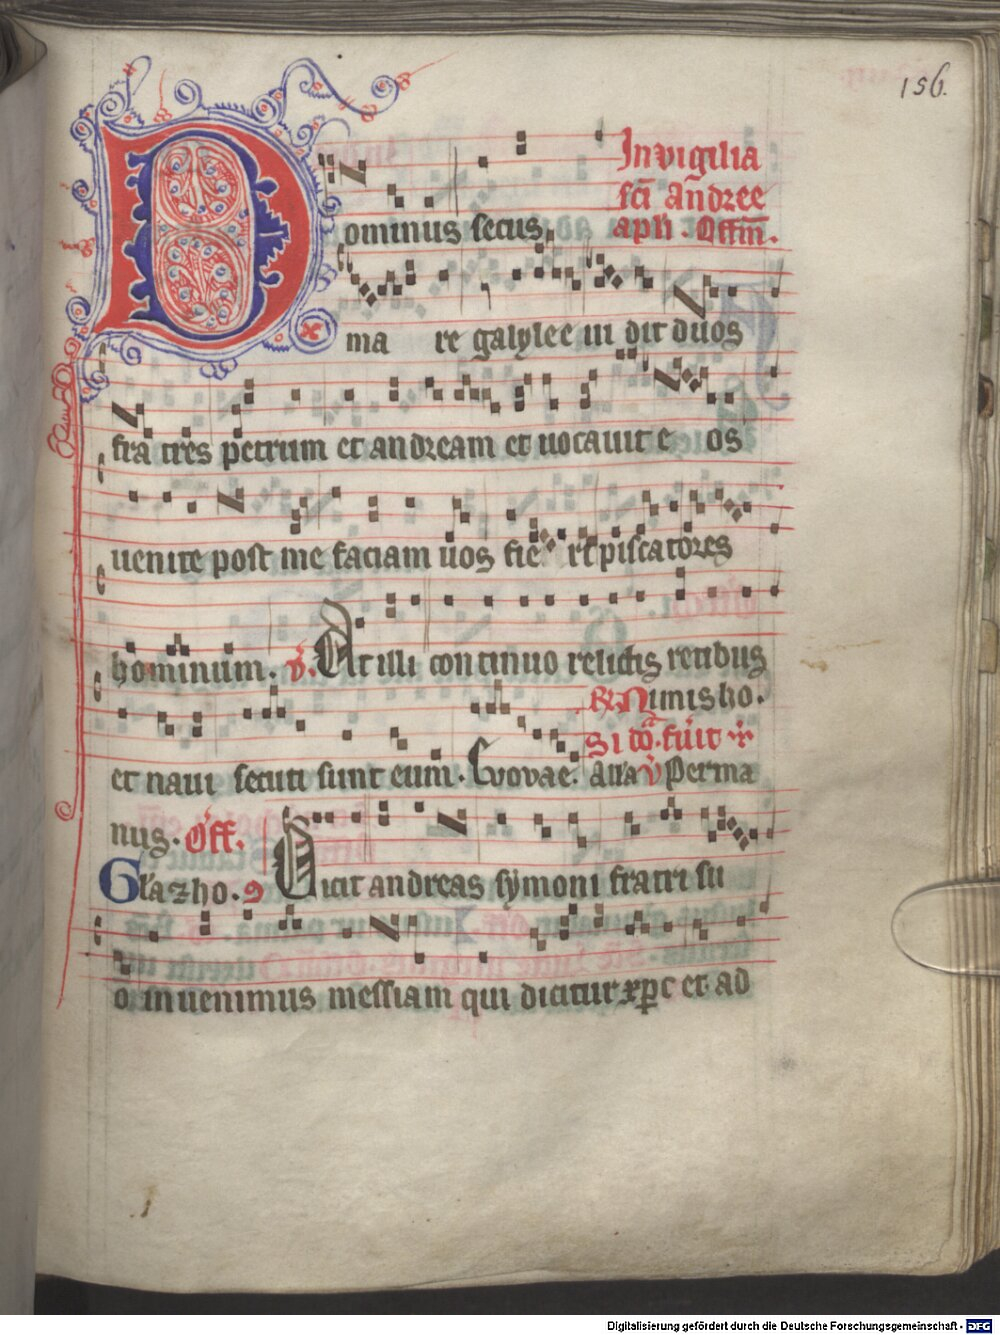 156.
In vigilia
sci andree
apli. Offm.
Dominus secus
ma re galylee ui dit duos
fra tres petrum et andream et uocauit e os
uenite post me faciam uos fie ri piscatores
hominum. v. At illi continuo relictis retibus
Nimis ho.
et naui secuti sunt eum. Euouae. Alla v Perma
nus. Off.
Gla z ho. Dicit andreas symoni fratri su
o inuenimus messiam qui dicitur xpc et ad
Digitalisierung gefördert durch die Deutsche Forschungsgemeinschaft - DFG